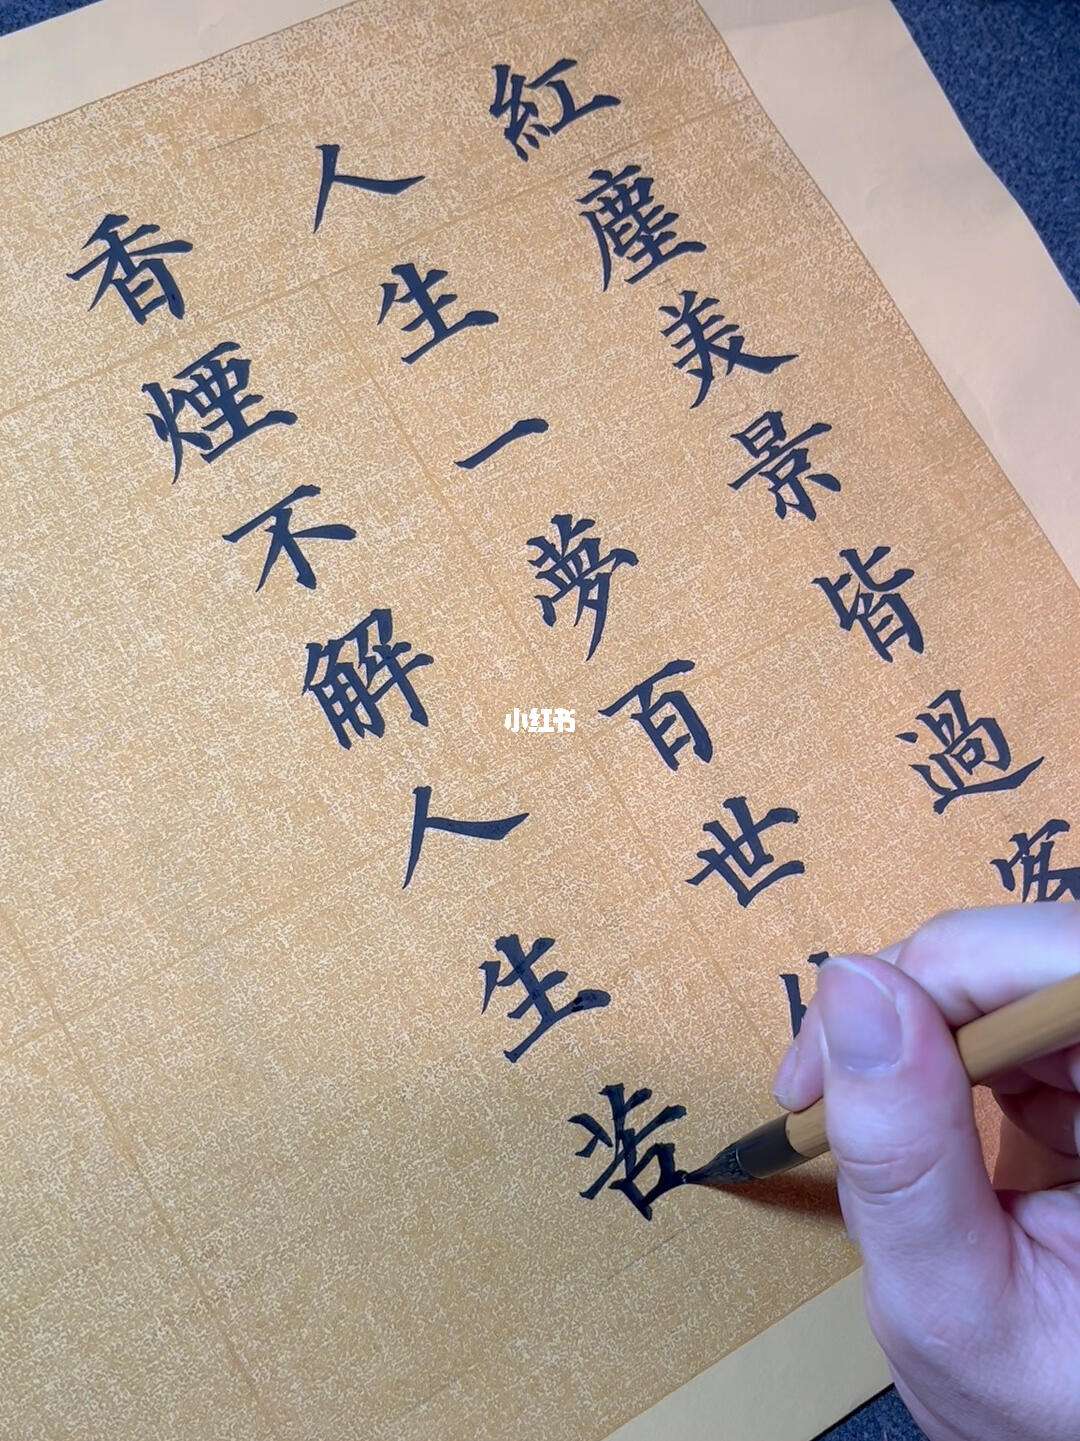 紅塵美景皆過客
人生一夢百世
香煙不解人生苦
小红书